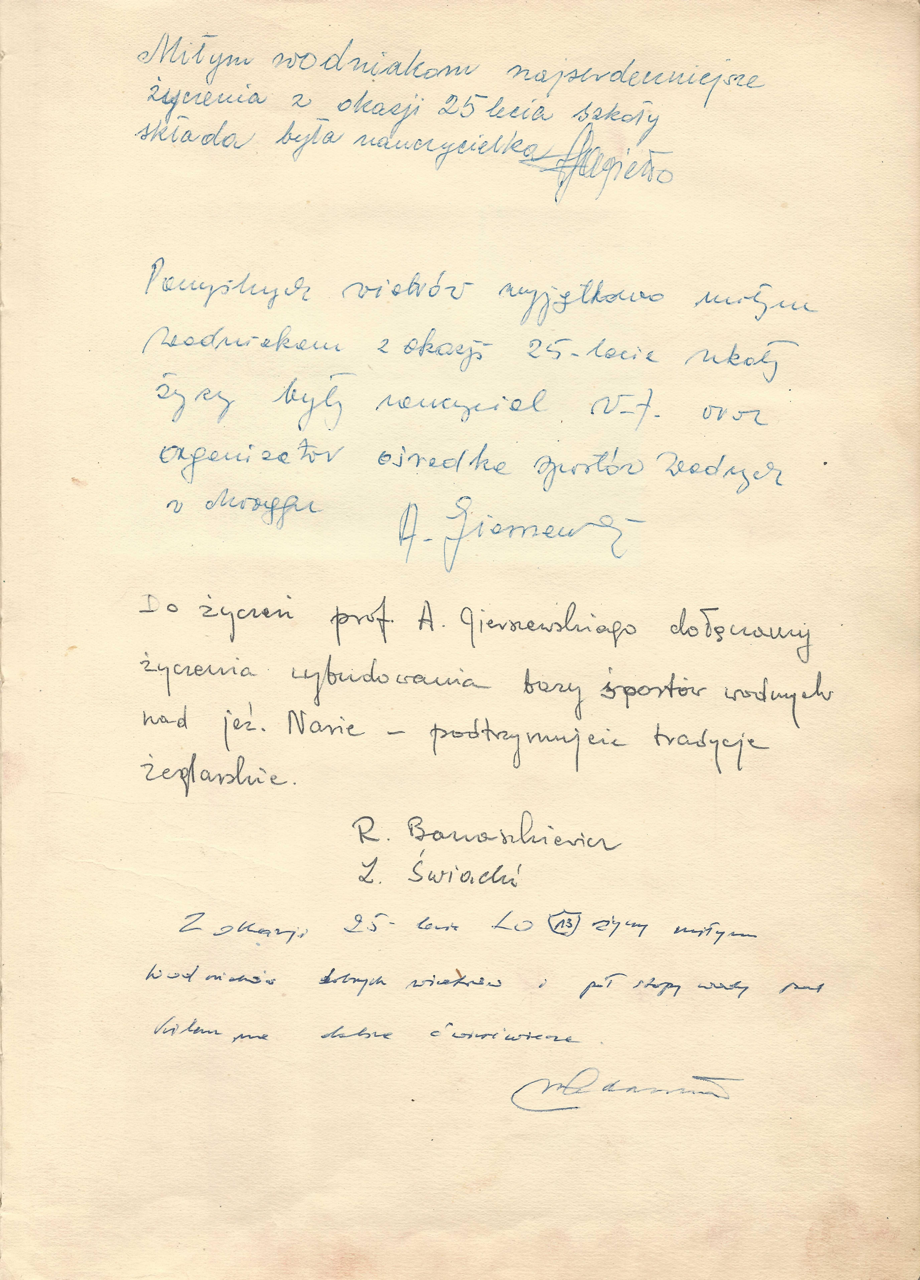 Miłym wodniakom najserdeczniejsze
życzenia z okazji 25 lecia szkoły
składa była nauczycielka
Pomyślnych wiatrów wyjątkowo miłym
wodniakom z okazji 25-lecia szkoły
życzy były nauczyciel W-F. oraz
organizator ośrodka sportów wodnych
w Morągu
A. Gierszewski
Do życzeń prof. A. Gierszewskiego dołączamy
życzenia wybudowania bazy sportów wodnych
nad jez. Narie – podtrzymujcie tradycje
żeglarskie.
R. Banaszkiewicz
Z. Świacki
Z okazji 25-lecia LO 13 życzy miłym
wodniaków dobrych wiatrów i pół stopy wody pod
kilem na dalsze ćwierćwiecze